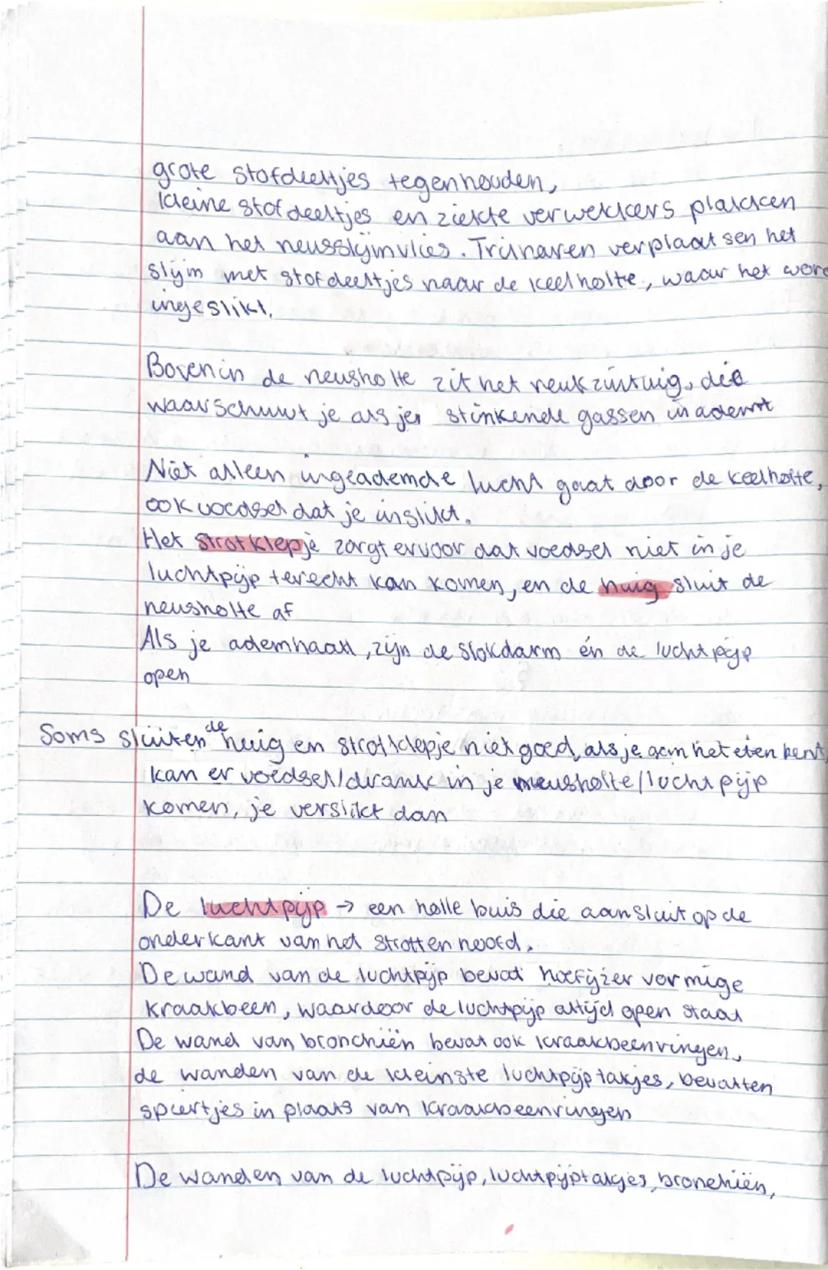 grote stofdeeltjes tegenhouden,
kleine stofdeeltjes en ziekte verwekkers plakken
aan het neusslijmvlies. Trilharen verplaatsen het
slijm met stofdeeltjes naar de keelholte, waar het word
ingeslikt.
Bovenin de neusholte zit het reukzintuig, die
waarschuwt je als je stinkende gassen inademt
Niet alleen ingeademde lucht gaat door de keelholte,
ook voedsel dat je inslikt.
Het strotklepje zorgt ervoor dat voedsel niet in je
luchtpijp terecht kan komen, en de huig sluit de
neusholte af
Als je ademhaalt, zijn de slokdarm én de luchtpijp
open
Soms sluiten de huig en strotklepje niet goed, als je aan het eten bent,
kan er voedsel/drank in je neusholte/luchtpijp
komen, je verslikt dan
De luchtpijp → een holle buis die aansluit op de
onderkant van het strottenhoofd.
De wand van de luchtpijp bevat hoefijzer vormige
kraakbeen, waardoor de luchtpijp altijd open staat
De wand van bronchiën bevat ook kraakbeenringen,
de wanden van de kleinste luchtpijptakjes, bevatten
spiertjes in plaats van kraakbeenringen
De wanden van de luchtpijp, luchtpijptakjes, bronchiën,